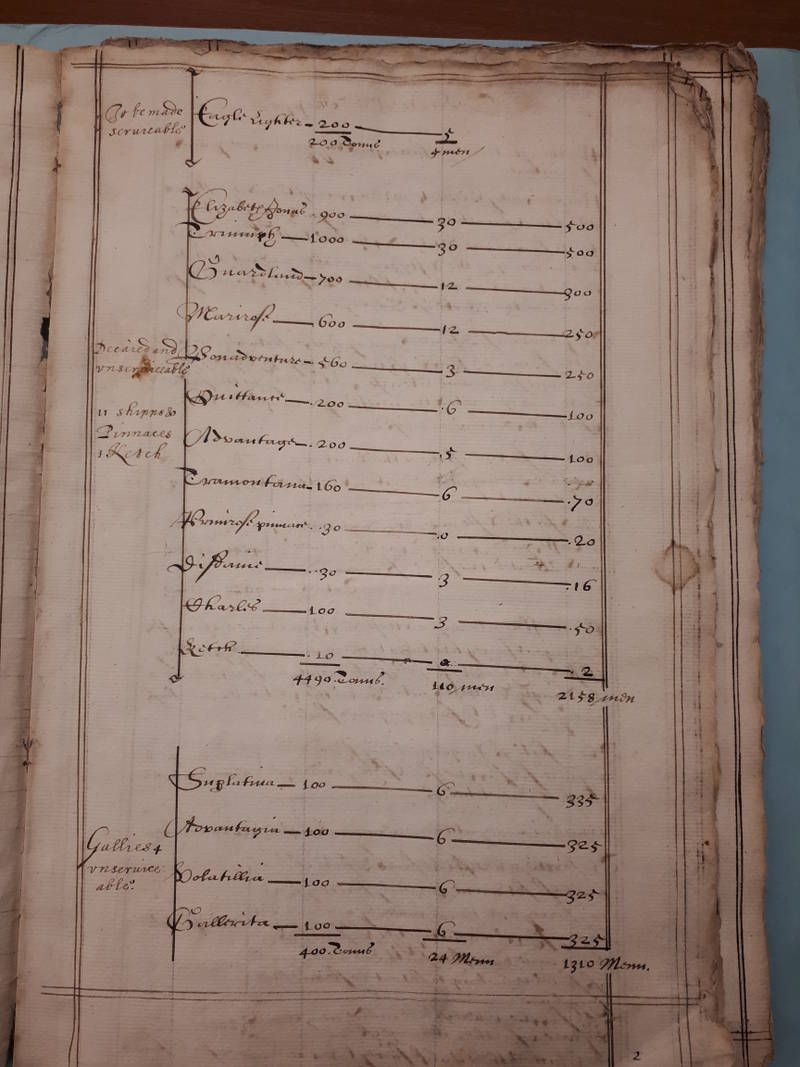 To be made
serviceable
Eagle Lighter 200 5
200 Tonns 5 men
Elizabeth Jonas 900 30 500
Triumph 1000 30 500
Guardland 700 12 300
Marirose 600 12 250
Decaied and
vnserviceable
Bonadventure 560 3 250
Quittans 200 6 100
11 shipps &
Advantage 200 5 100
Pinnaces
1 Ketch
Tramontana 160 6 70
Primrose pinnace 30 0 20
Disdaine 30 3 16
Charles 100 3 50
Ketch 10 0 2
4490 Tonns. 110 men 2158 men
Suplatina 100 6 335
Advantagia 100 6 325
Gallies 4
vnservice
able
Volatillia 100 6 325
Gallerita 100 6 325
400 Tonns 24 Menn 1310 Menn.
2